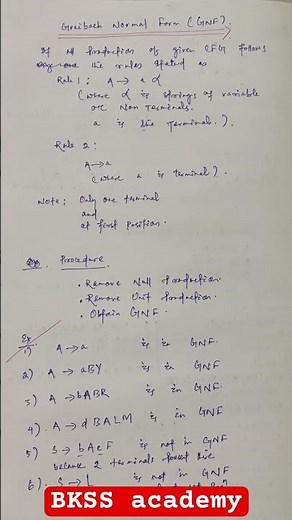 Greibach Normal Form (GNF).
If all Production of given CFG follows
the rules stated as
Rule 1: A → a α
(where α is strings of variable
or Non Terminals.
a is the terminal.).
Rule 2:
A → a
(where a is terminal).
Note: Only one terminal
and
at first position.
Procedure
• Remove Null Production.
• Remove Unit Production.
• Obtain GNF.
Ex
1) A → a is in GNF.
2) A → aBY is in GNF
3) A → bABR is in GNF
4) A → dBALM is in GNF
5) S → bAeF is not in GNF
because 2 terminals present
6). S → L is not in GNF
BKSS academy